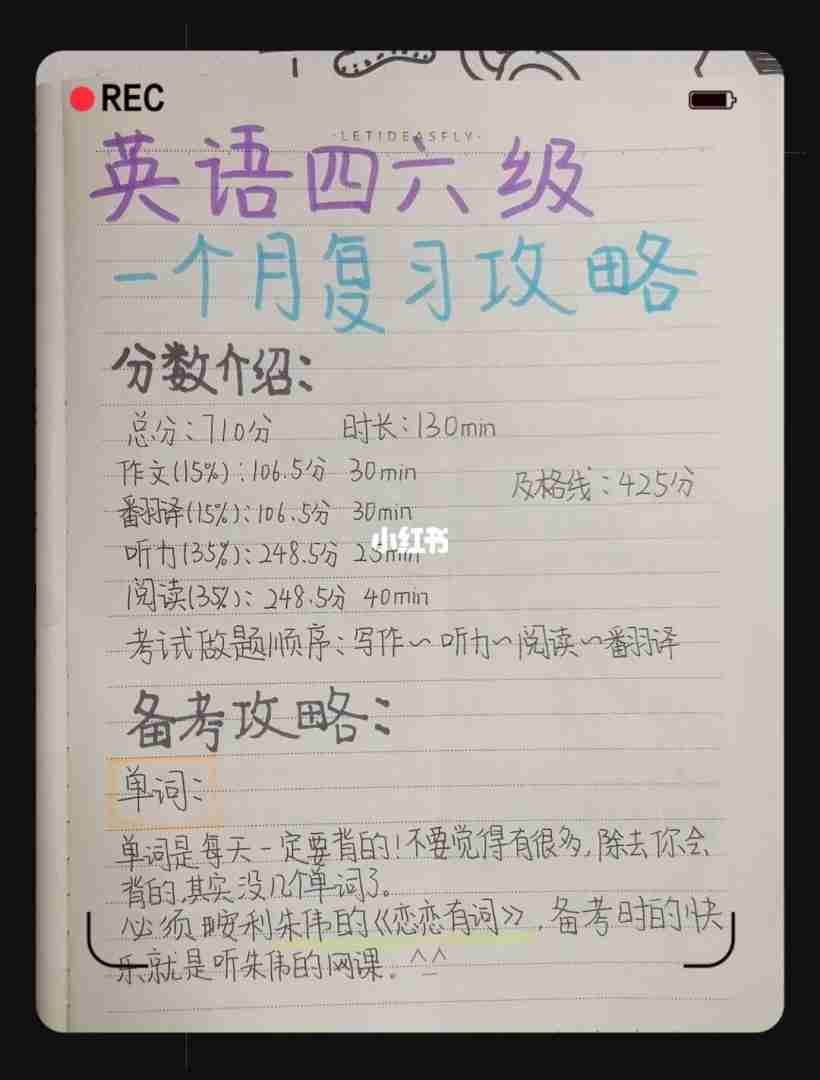 REC
·LETIDEASFLY·
英语四六级
一个月复习攻略
分数介绍:
总分:710分 时长:130min
作文(15%):106.5分 30min
及格线:425分
翻译(15%):106.5分 30min
听力(35%):248.5分 25min
小红书
阅读(35%):248.5分 40min
考试做题顺序:写作~听力~阅读~翻译
备考攻略:
单词:
单词是每天一定要背的!不要觉得有很多,除去你会
背的,其实没几个单词了。
必须安利朱伟的《恋恋有词》,备考时的快
乐就是听朱伟的网课。^_^